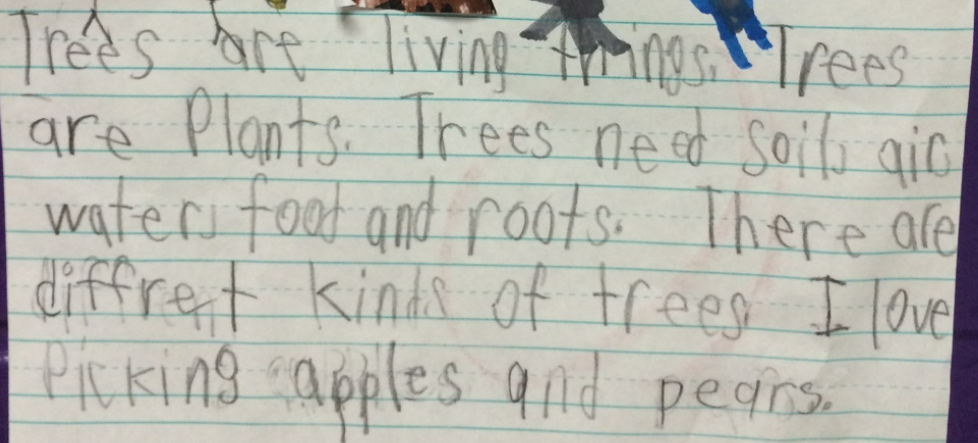 Trees are living things. Trees
are Plants. Trees need soil, air
water, food and roots. There are
diffrent kinds of trees. I love
Picking apples and pears.